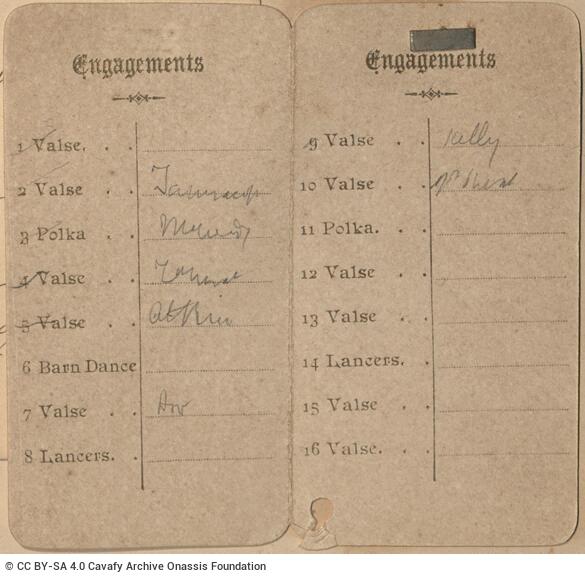 Engagements
1 Valse. . .
2 Valse . .
3 Polka . .
4 Valse . .
5 Valse . .
6 Barn Dance
7 Valse . .
8 Lancers. .
Engagements
9 Valse . .
10 Valse . .
11 Polka. . .
12 Valse . .
13 Valse . .
14 Lancers. .
15 Valse . .
16 Valse. . .
© CC BY-SA 4.0 Cavafy Archive Onassis Foundation